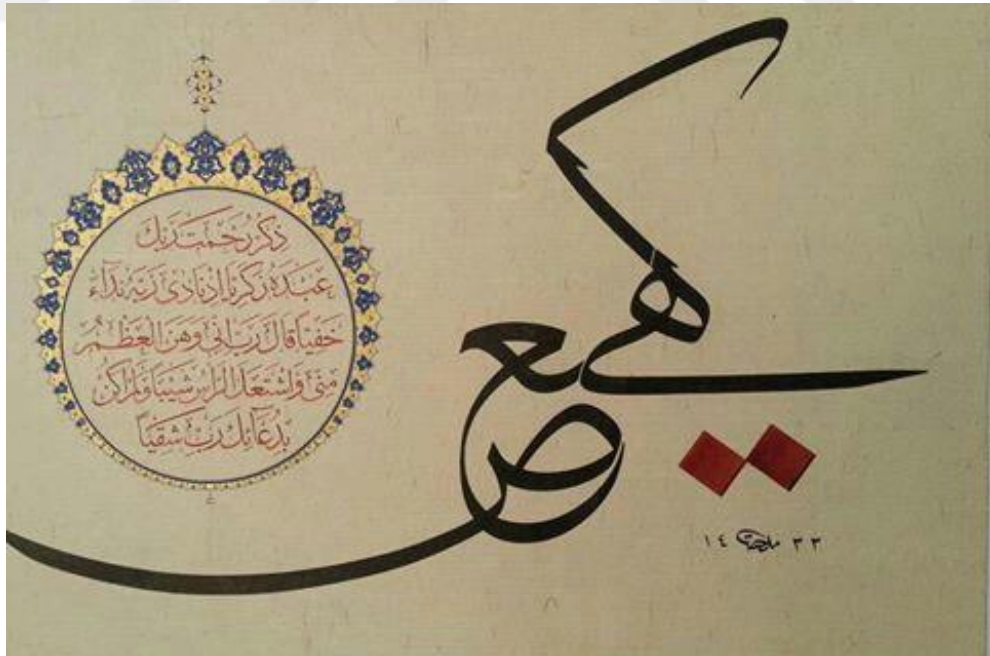 كهيعص
ذكر رحمت ربك
عبده زكريا إذ نادى ربه نداء
خفيا قال رب إني وهن العظم
مني واشتعل الرأس شيبا ولم أكن
بدعائك رب شقيا
١٤ ٣٣